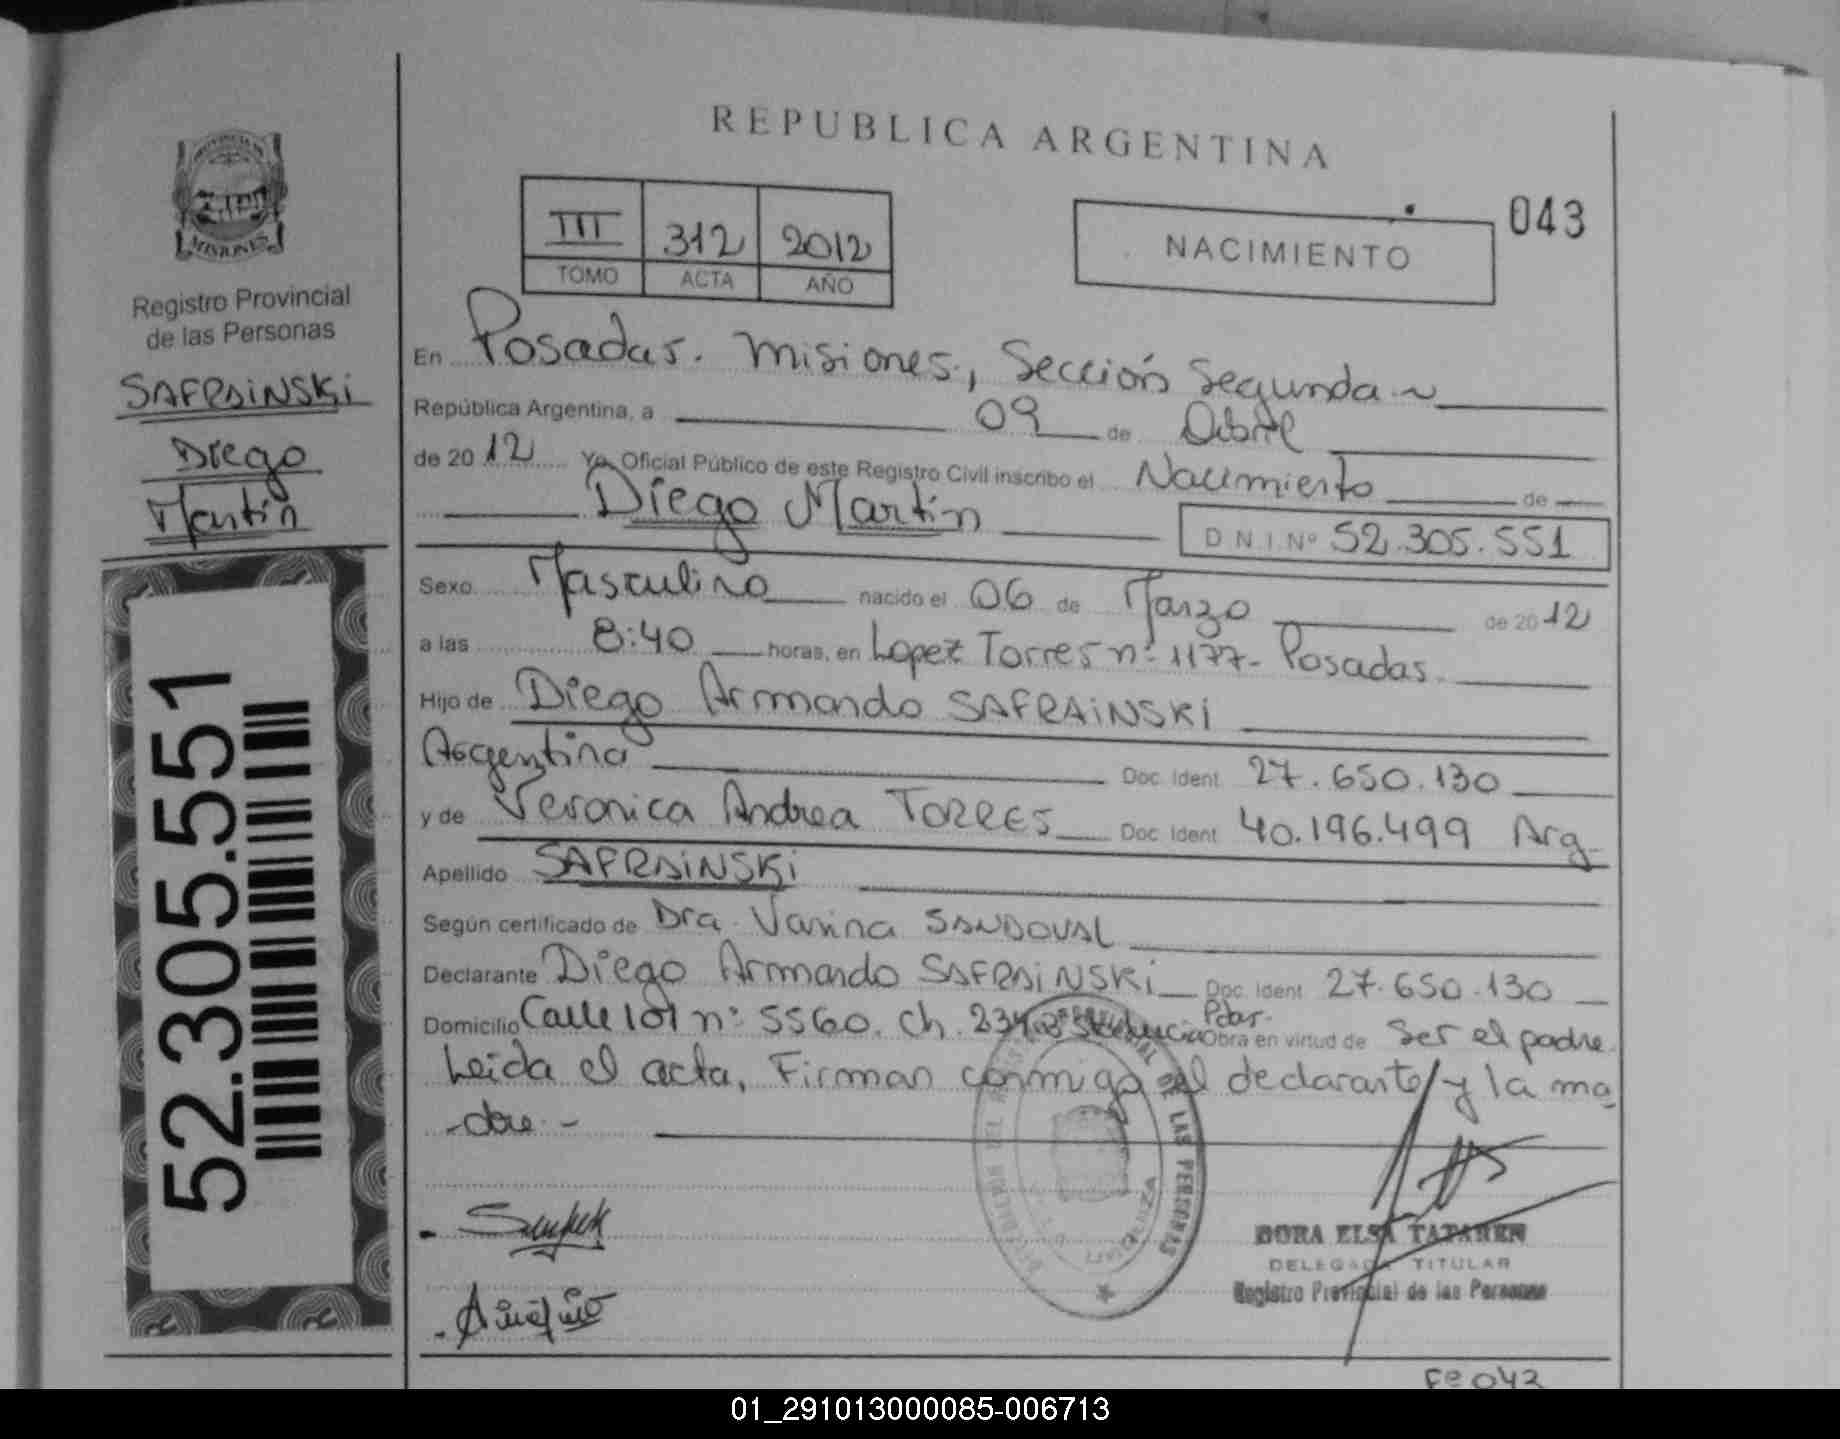 REPUBLICA ARGENTINA
043
III 312 2012
TOMO ACTA AÑO
NACIMIENTO
MISIONES
Registro Provincial
de las Personas
SAFRAINSKI
Diego
Martín
52.305.551
En Posadas. Misiones, Sección Segunda
República Argentina, a 09 de Abril
de 2012 Yo, Oficial Público de este Registro Civil inscribo el Nacimiento de
Diego Martín
D.N.I. Nº 52.305.551
Sexo Masculino nacido el 06 de Marzo de 2012
a las 8:40 horas, en Lopez Torres nº 1177- Posadas
Hijo de Diego Armando SAFRAINSKI
Argentina Doc. Ident. 27.650.130
y de Veronica Andrea TORRES Doc. Ident. 40.196.499 Arg.
Apellido SAFRAINSKI
Según certificado de Dra. Vanina SANDOVAL
Declarante Diego Armando SAFRAINSKI Doc. Ident. 27.650.130
Domicilio Calle 101 nº 5560. Ch. Pdas. Obra en virtud de Ser el padre.
Leida el acta, Firman conmigo el declarante y la ma
-dre.-
DE LAS PERSONAS
DORA ELSA TATAREN
DELEGADA TITULAR
Registro Provincial de las Personas
Fº 043
01_291013000085-006713